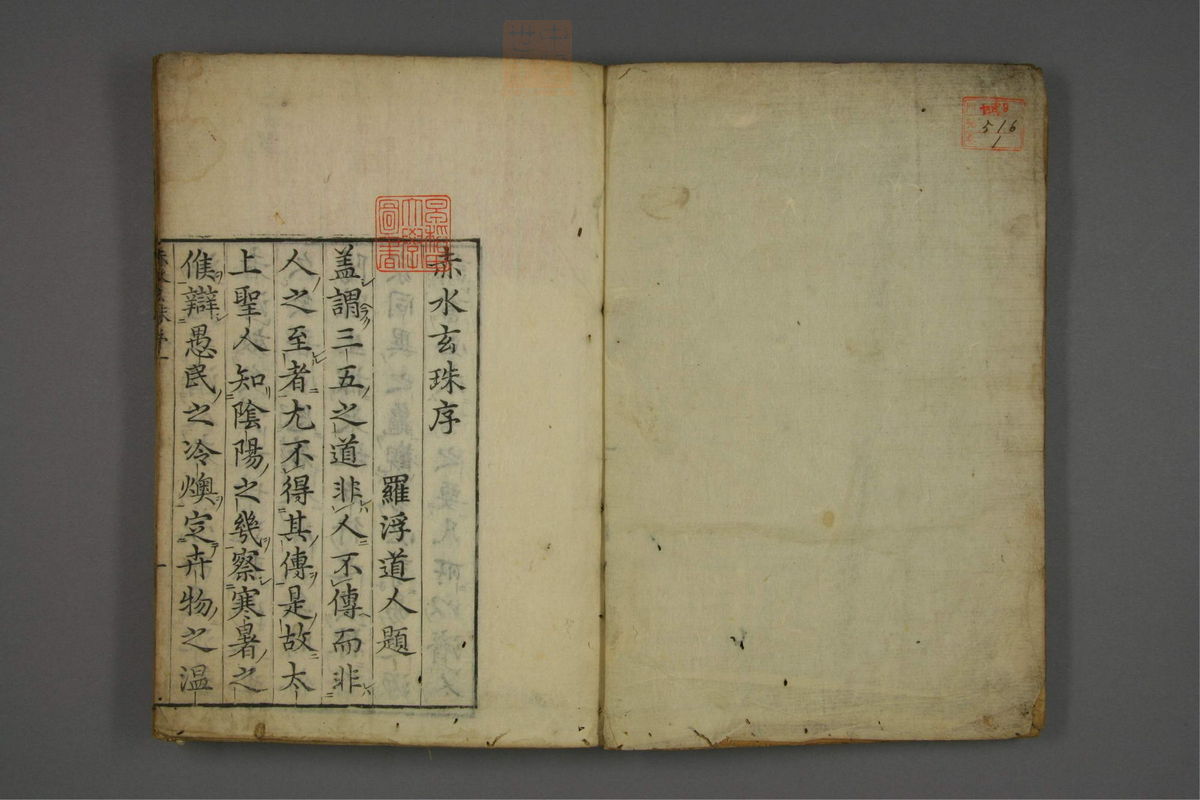 赤水玄珠序
羅浮道人題
盖謂三五之道非人不傳而非
人之至者尤不得其傳是故太
上聖人知陰陽之幾察寒暑之
候辯愚民之冷燠定卉物之温
516
1